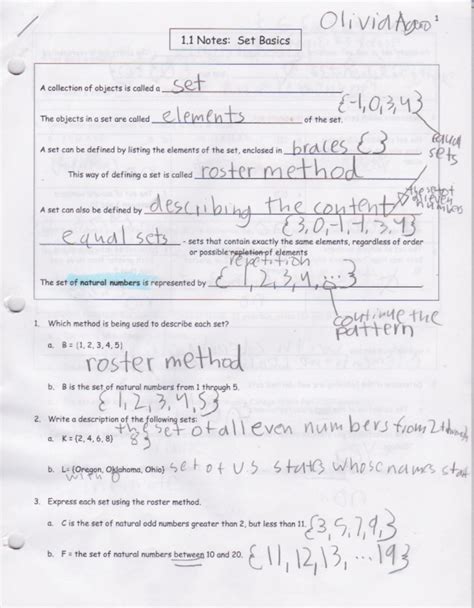 Olivia Agoo 1
1.1 Notes: Set Basics
A collection of objects is called a set
{-1,0,3,4}
The objects in a set are called elements of the set.
equal sets
A set can be defined by listing the elements of the set, enclosed in braces { }
This way of defining a set is called roster method
the set of all even numbers
A set can also be defined by describing the content
{3,0,-1,-1,3,4}
equal sets - sets that contain exactly the same elements, regardless of order
or possible repletion of elements
repetition
The set of natural numbers is represented by {1,2,3,4,...}
continue the pattern
1. Which method is being used to describe each set?
a. B = {1, 2, 3, 4, 5}
roster method
b. B is the set of natural numbers from 1 through 5.
{1,2,3,4,5}
2. Write a description of the following sets:
a. K = {2, 4, 6, 8} the set of all even numbers from 2 through 8}
b. L= {Oregon, Oklahoma, Ohio} set of US states whose names start with O
3. Express each set using the roster method.
a. C is the set of natural odd numbers greater than 2, but less than 11. {3,5,7,9,}
b. F = the set of natural numbers between 10 and 20. {11,12,13,...19}